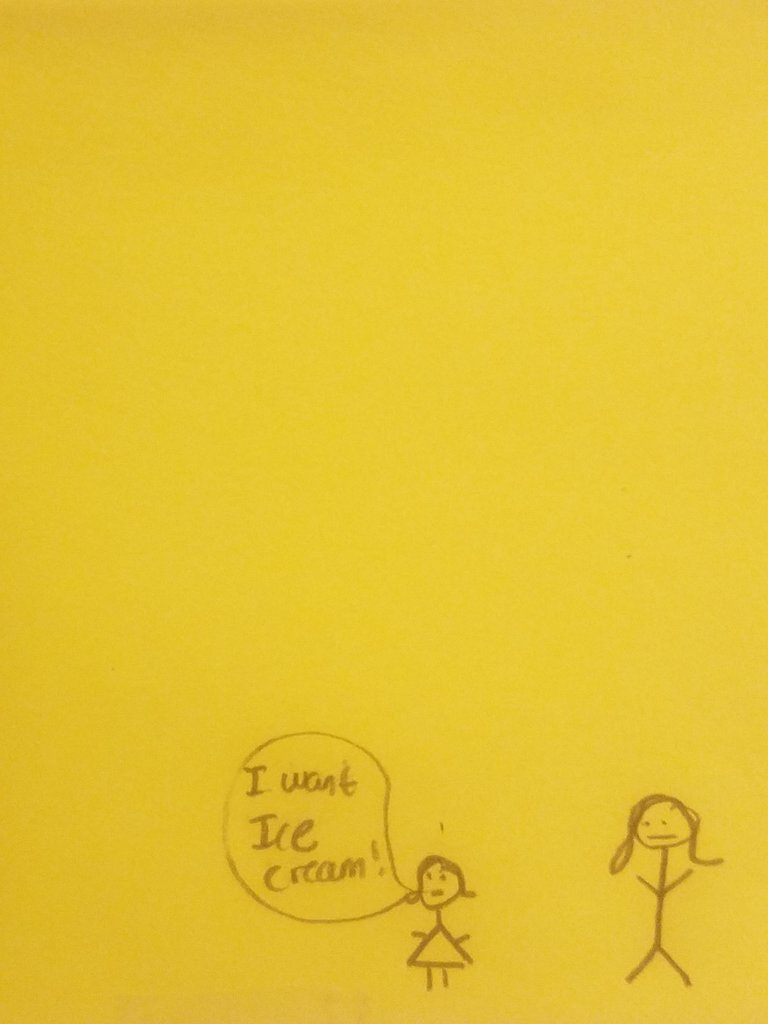 I want
Ice
Cream!